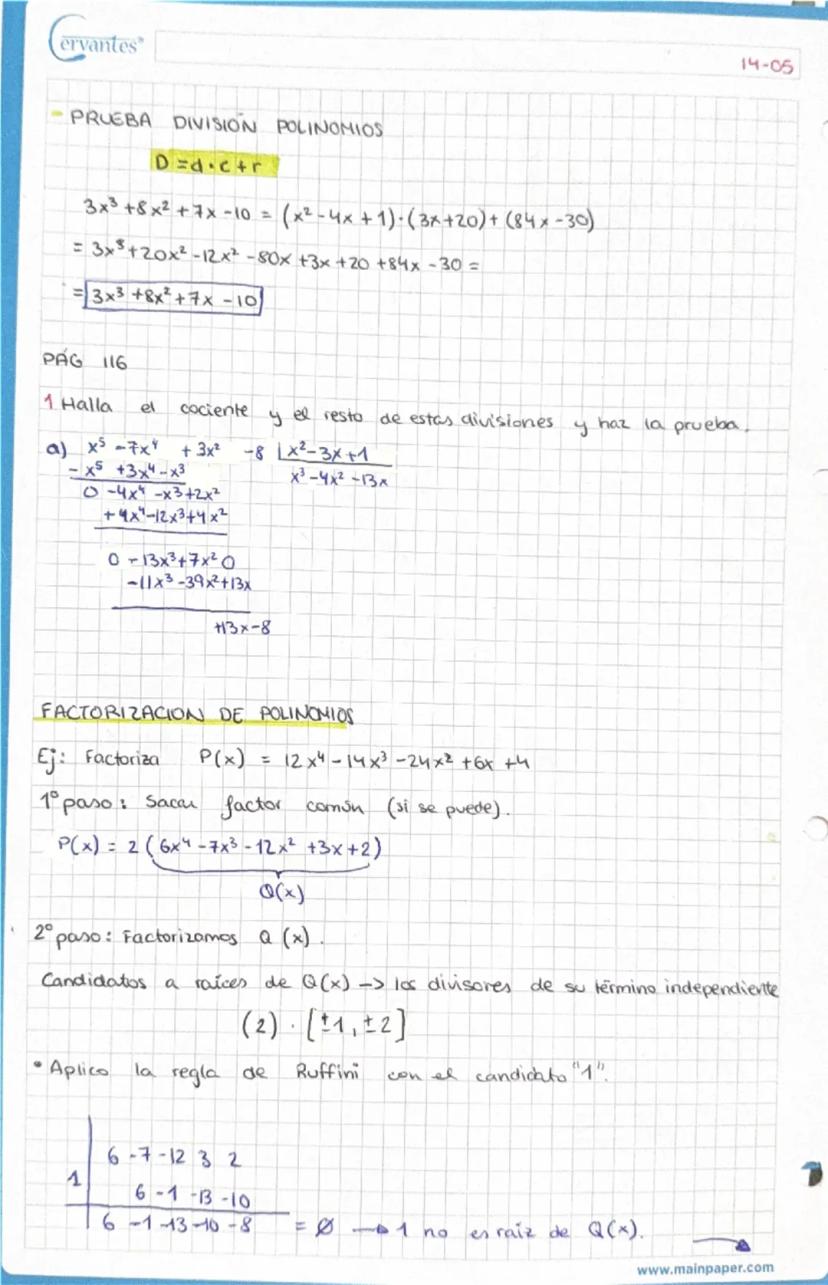 Cervantes®
14-05
- PRUEBA DIVISIÓN POLINOMIOS
D = d · c + r
3x³ + 8x² + 7x - 10 = (x² - 4x + 1) · (3x + 20) + (84x - 30)
= 3x³ + 20x² - 12x² - 80x + 3x + 20 + 84x - 30 =
= 3x³ + 8x² + 7x - 10
PÁG 116
1 Halla el cociente y el resto de estas divisiones y haz la prueba.
a) x⁵ - 7x⁴ + 3x² - 8 | x² - 3x + 1
- x⁵ + 3x⁴ - x³ x³ - 4x² - 13x
0 - 4x⁴ - x³ + 2x²
+ 4x⁴ - 12x³ + 4x²
0 - 13x³ + 7x² 0
- 11x³ - 39x² + 13x
+13x - 8
FACTORIZACION DE POLINOMIOS
Ej: Factoriza P(x) = 12x⁴ - 14x³ - 24x² + 6x + 4
1º paso: Sacar factor común (si se puede).
P(x) = 2 (6x⁴ - 7x³ - 12x² + 3x + 2)
Q(x)
2º paso: Factorizamos Q (x).
Candidatos a raíces de Q(x) -> los divisores de su término independiente
(2) · [±1, ±2]
• Aplico la regla de Ruffini con el candidato "1".
6 -7 -12 3 2
1 6 -1 -13 -10
6 -1 -13 -10 -8 = Ø → 1 no es raíz de Q(x).
www.mainpaper.com